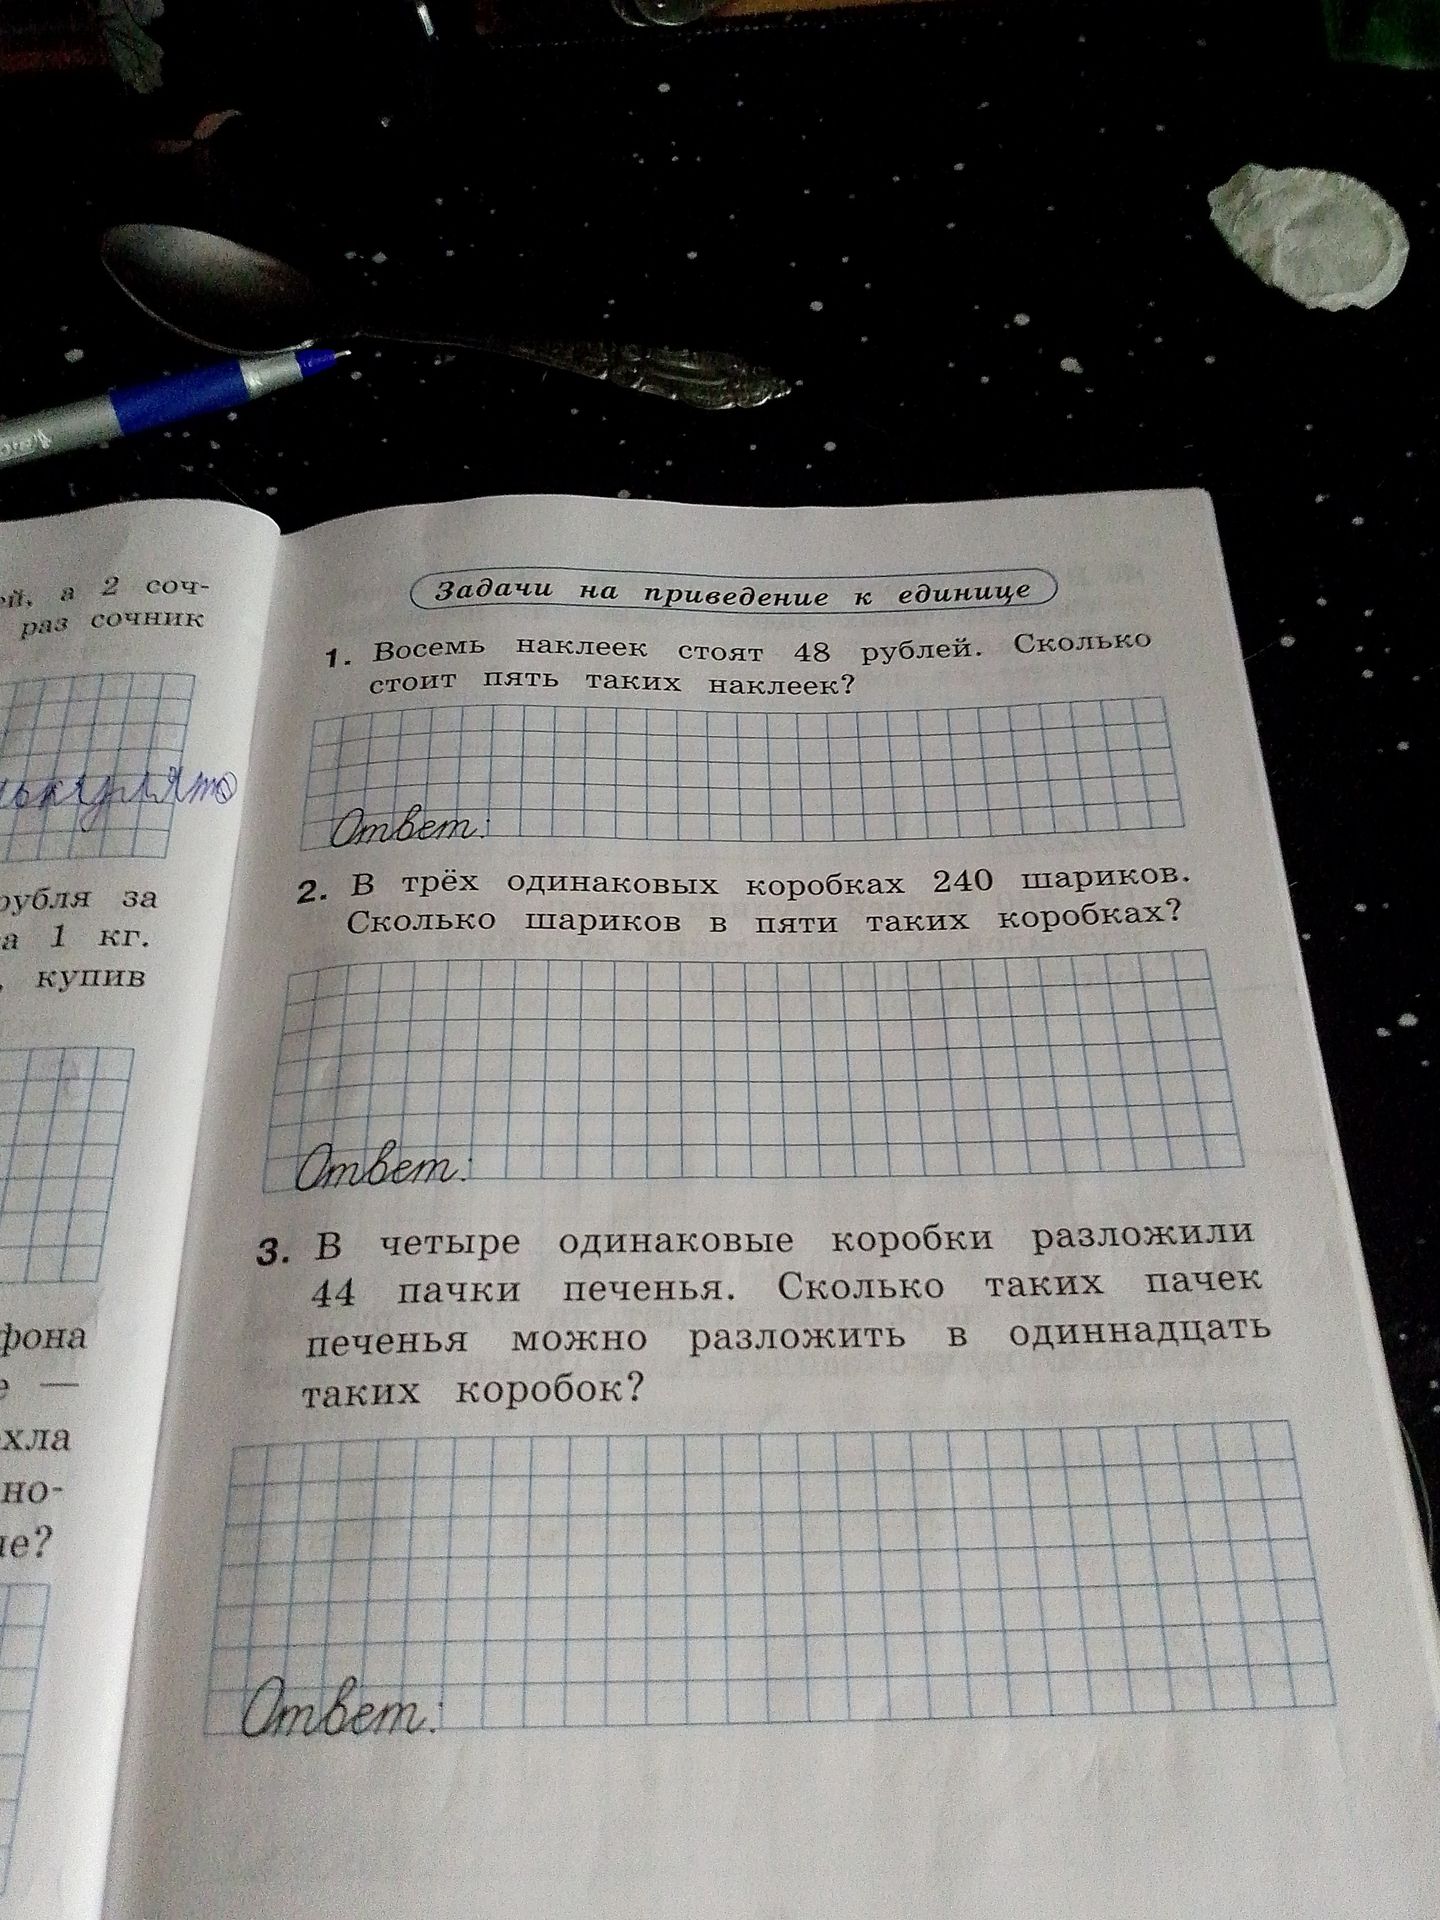 а 2 соч-
раз сочник
рубля за
1 кг.
купив
Задачи на приведение к единице
1. Восемь наклеек стоят 48 рублей. Сколько
стоит пять таких наклеек?
Ответ:
2. В трёх одинаковых коробках 240 шариков.
Сколько шариков в пяти таких коробках?
Ответ:
3. В четыре одинаковые коробки разложили
44 пачки печенья. Сколько таких пачек
печенья можно разложить в одиннадцать
таких коробок?
Ответ: